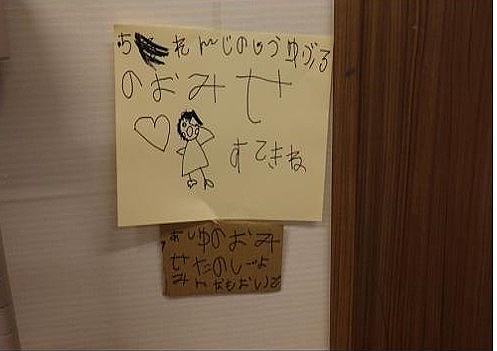 お れんじのしうゆぶる
のおみせ
すてきね
おしゆのおみ
せたのしーよ
みんなもおいで